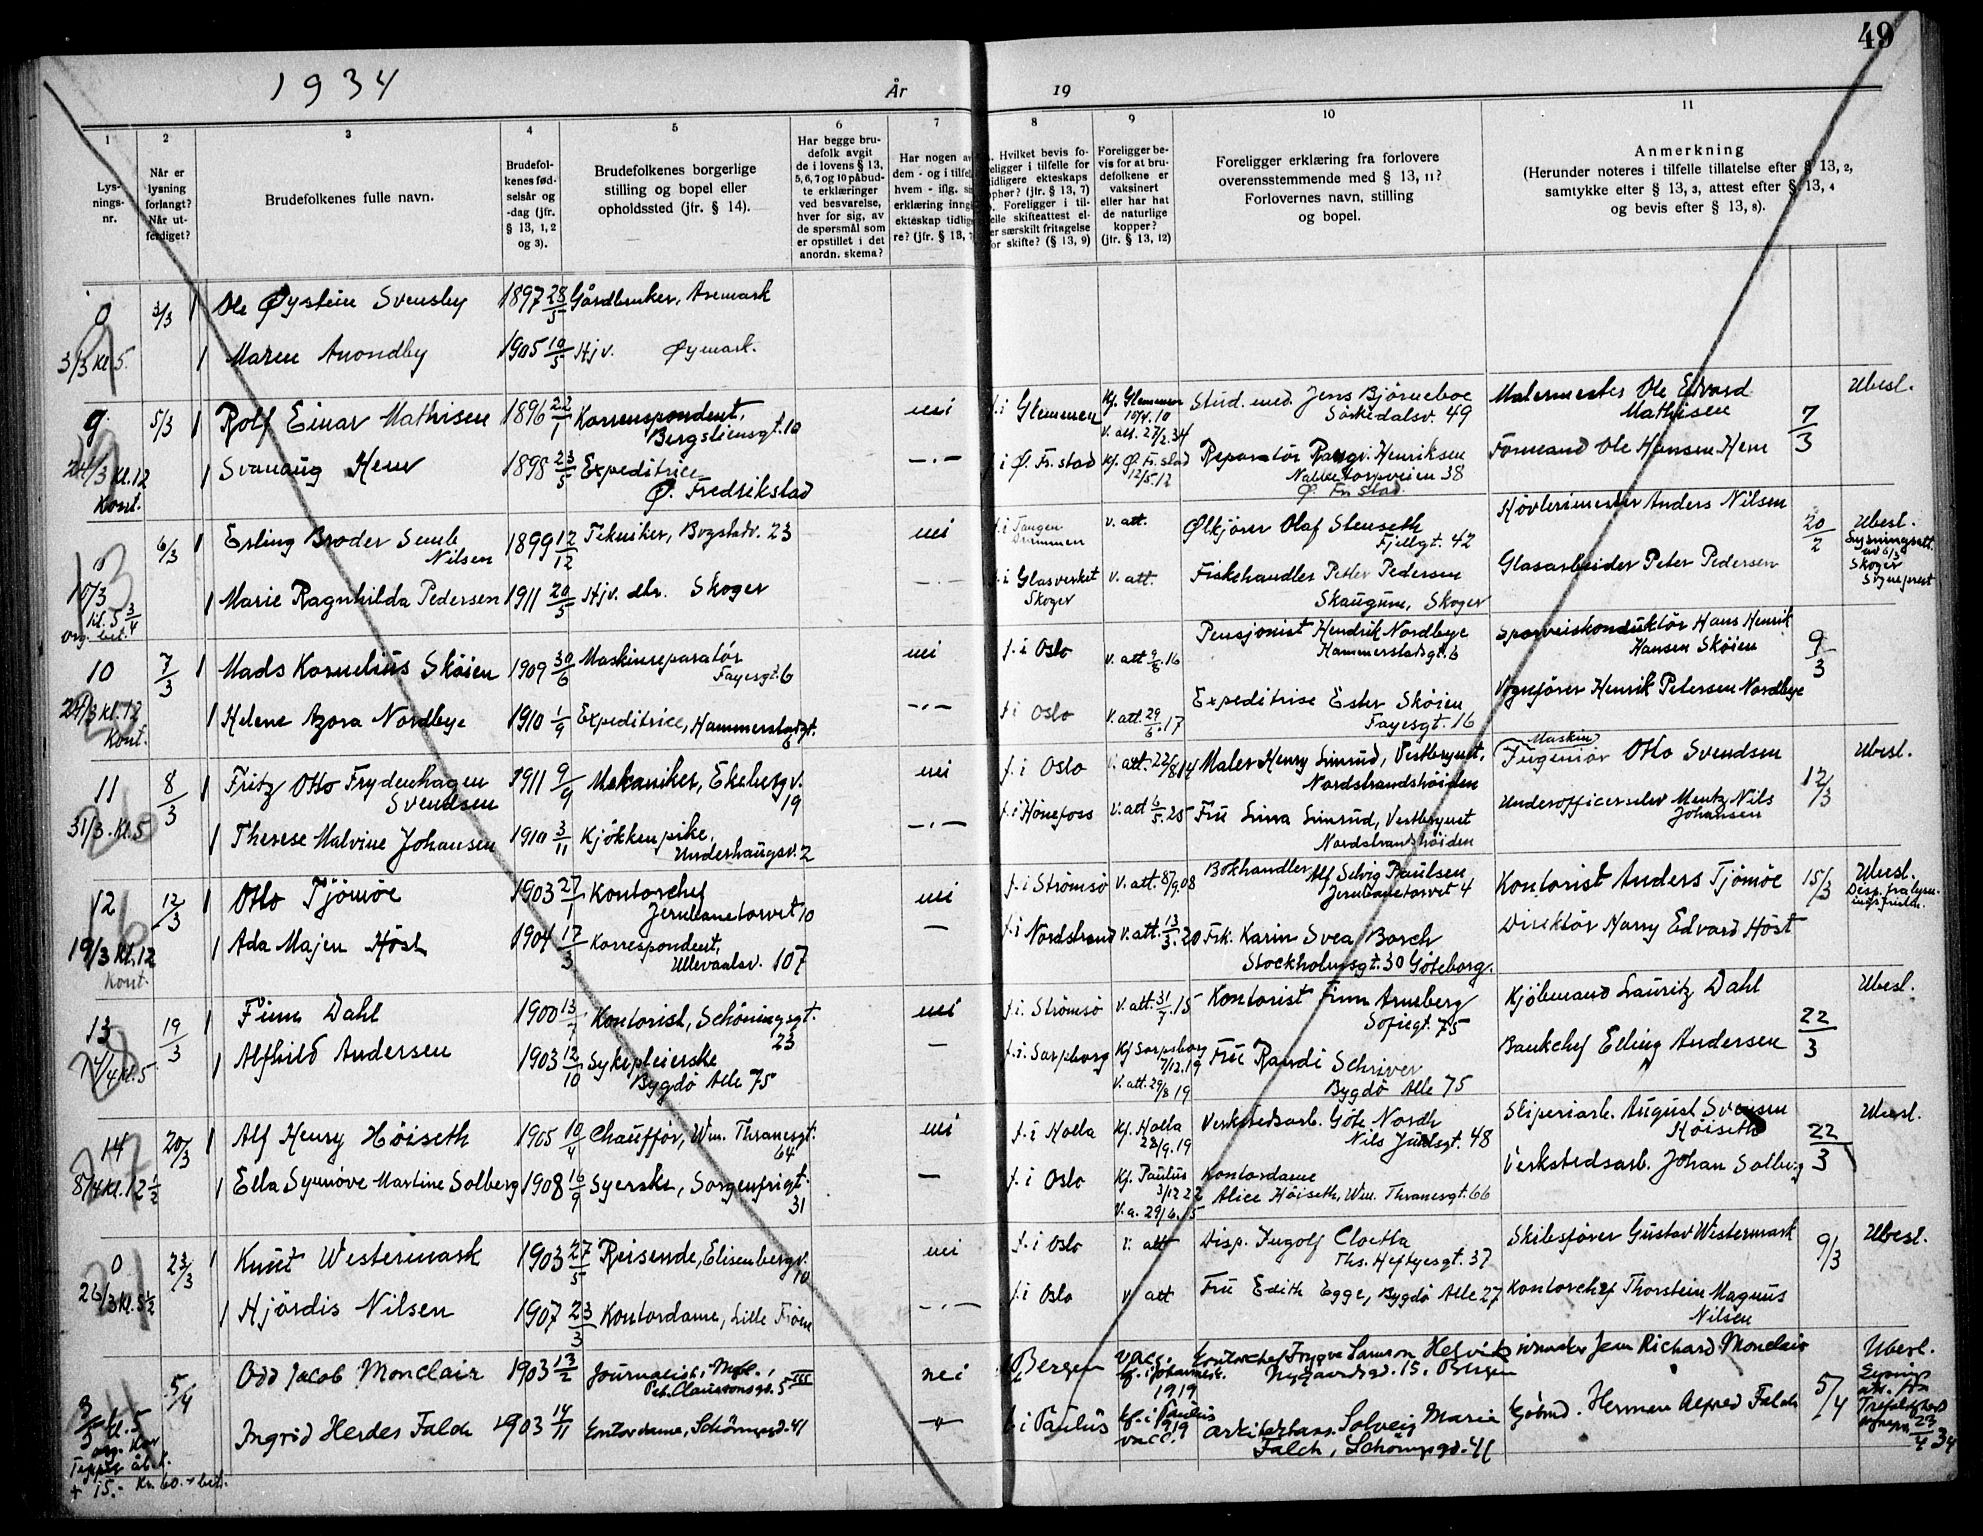 49
1934
År
19
1
2
3
4
5
6
7
8
9
10
11
Lys-
nings-
nr.
Når er
lysning
forlangt?
Når ut-
ferdiget?
Brudefolkenes fulle navn.
Brudefol-
kenes fød-
selsår og
-dag (jfr.
§ 13, 1, 2
og 3).
Brudefolkenes borgerlige
stilling og bopel eller
opholdssted (jfr. § 14).
Har begge bru-
defolk avgit
de i lovens § 13,
5, 6, 7 og 10 påbud-
te erklæringer
ved besvarelse,
hver for sig, av
de spørsmål som
er opstillet i det
anordn. skema?
Har nogen av
dem - og i tilfel
hvem - iflg. s
erklæring inng
ekteskap tidlig
re? (jfr. § 13,
Hvilket bevis fo-
religger i tilfelle for
tidligere ekteskaps
ophør? (jfr. § 13, 7)
Foreligger i til-
elle skifteattest el-
er særskilt fritagelse
or skifte? (§ 13, 9)
Foreligger be-
vis for at bru-
defolkene er
vaksinert
eller har hat
de naturlige
kopper?
(jfr. § 13, 12)
Foreligger erklæring fra forlovere
overensstemmende med § 13, 11?
Forlovernes navn, stilling
og bopel.
Anmerkning
(Herunder noteres i tilfelle tillatelse efter § 13, 2,
samtykke efter § 13, 3, attest efter § 13, 4
og bevis efter § 13, 8).
0 3/3 1 Ole Øystein Svensby 1897 28/5 Gårdbruker, Aremark
3/3 kl 5. 1 Maren Anondby 1905 10/5 Hjv. Øymark.
9 5/3 1 Rolf Einar Mathisen 1896 22/1 Korrespondent,
Bergsliensgt. 10 nei f. i Glemmen Kf. Glemmen
10/4.10
v. att. 27/2.34 Stud. med. Jens Bjørneboe
Sørkedalsv. 49 Malermester Ole Edvard
Mathisen 7/3 Ubesl.
24/3 kl. 12
Kont. 1 Svanaug Hem 1898 23/5 Expeditrice
Ø. Fredrikstad i Ø. Fr. stad Kf. Ø. Fr. stad
12/5.12 Reparatør Ragv. Henriksen
Nabbetorpveien 38
Ø. Fr. stad. Formand Ole Hansen Hem
6/3 1 Erling Broder Semb
Nilsen 1899 12/12 Tekniker, Bogstadv. 23 nei f. i Tangen
Drammen v. att. Ølkjører Olaf Stenseth
Fjellgt. 42 Høvlerimester Anders Nilsen 20/2 Ubesl.
Lysningsatt.
av 6/3
Skoger
Sogneprest
10/3
kl. 5 3/4
org. bet. 1 Marie Ragnhilda Pedersen 1911 20/5 Hjv. dtr. Skoger f. i Glasverket
Skoger v. att. Fiskehandler Petter Pedersen
Skaugum, Skoger Glasarbeider Peter Pedersen
10 7/3 1 Mads Kornelius Skøien 1909 30/6 Maskinreparatør
Fayesgt. 6 nei f. i Oslo v. att 9/8.16 Pensjonist Hendrik Nordbye
Hammerstadsgt. 6 Sporveiskonduktør Hans Henrik
Hansen Skøien 9/3
24/3 kl. 12
Kont. 1 Helene Azora Nordbye 1910 1/9 Expeditrice, Hammerstadgt.
6 f. i Oslo v. att. 29/6.17 Expeditrise Ester Skøien
Fayesgt. 16 Vognfører Henrik Petersen Nordbye
11 8/3 1 Fritz Otto Frydenhagen
Svendsen 1911 9/9 Mekaniker, Ekebergv.
19 nei f. i Oslo v. att. 22/8 14 Maler Henry Simrud, Vestbrynet,
Nordstrandshøiden Maskin
Ingeniør Otto Svendsen 12/3 Ubesl.
31/3. kl. 5 1 Therese Malvine Johansen 1910 3/11 Kjøkkenpike,
Underhaugsv. 2 f. i Hønefoss v. att 6/5.25 Fru Linna Simrud, Vestbrynet
Nordstrandshøiden Underofficerselev Mentz Nils
Johansen
12 12/3 1 Otto Tjömöe 1903 27/1 Kontorchef
Jernbanetorvet 10 nei f. i Strømsø v. att. 8/9.08 Bokhandler Alf Selvig Paulsen
Jernbanetorvet 4 Kontorist Anders Tjömöe 15/3 Ubesl.
Disp. fra lysn-
ingsfristen.
19/3 kl. 12
Kont. 1 Ada Majen Höst 1904 17/3 Korrespondent,
Ullevaalsv. 107 f. i Nordstrand v. att. 13/3.20 Frk. Karin Svea Borch
Stockholmsgt. 30 Göteborg. Direktör Harry Edvard Höst
13 19/3 1 Finn Dahl 1900 13/7 Kontorist, Schöningsgt.
23 nei f. i. Strømsø v. att. 31/7.15 Kontorist Finn Arneberg
Sofiegt. 75 Kjöbmand Lauritz Dahl 22/3 Ubesl.
14/4 kl. 5 1 Alfhild Andersen 1903 12/10 Sykepleierske
Bygdö Alle 75 f. i. Sarpborg Kf Sarpsborg
7/12.19
v. att. 29/8 19 Fru Randi Schriver
Bygdö Alle 75 Bankchef Elling Andersen
14 20/3 1 Alf Henry Höiseth 1905 10/4 Chauffør, Wm. Thranesgt.
64 nei f. i Holla Kf. Holla
28/9.19 Verkstedsarb. Göte Nordh
Nils Juelsgt. 48 Sliperiarb. August Svensen
Höiseth 22/3 Ubesl.
8/4 kl. 12 1/2 1 Ella Synnöve Martine Solberg 1908 16/9 Syerske, Sorgenfrigt.
31 f. i Oslo Kf. Paulus
3/12 22
v. a. 29/6.15 Kontordame
Alice Höiseth, Wm. Thranesgt. 66 Verkstedsarb. Johan Solberg
0 23/3 1 Knut Westermark 1903 27/5 Reisende, Elisenbergv.
10 nei f. i Oslo v. att Disp. Ingolf Cloetta
Ths. Heftyesgt. 37 Skibsfører Gustav Westermark 9/3 Ubesl.
26/3 kl. 5 1/2 1 Hjördis Nilsen 1907 23/3 Kontordame, Lille Frøen f. i Oslo v. att Fru Edith Egge, Bygdö Alle 27 Kontorchef Thorstein Magnus
Nilsen
5/4 Odd Jacob Monclair 1903 13/2 Journalist,
Pet. Claussonsgt. 5 III nei Bergen vacc.
kf. i Johannesk.
1919 Kontorchef Trygve Samson Helvik
Nygaardsgt. 15. Bergen Jean Richard Monclair 5/4 Ubesl.
kl. 5
org. Ingrid Herdes Falch 1903 14/11 Kontordame, Schönningsgt. 41 f. i Paulus kf. i Paulus
1919
vacc. Solveig Marie
Falch, Schönningsgt. 41 Herman Alfred Falch
23/4 34
+ 15.- Kr. 60.- bet.